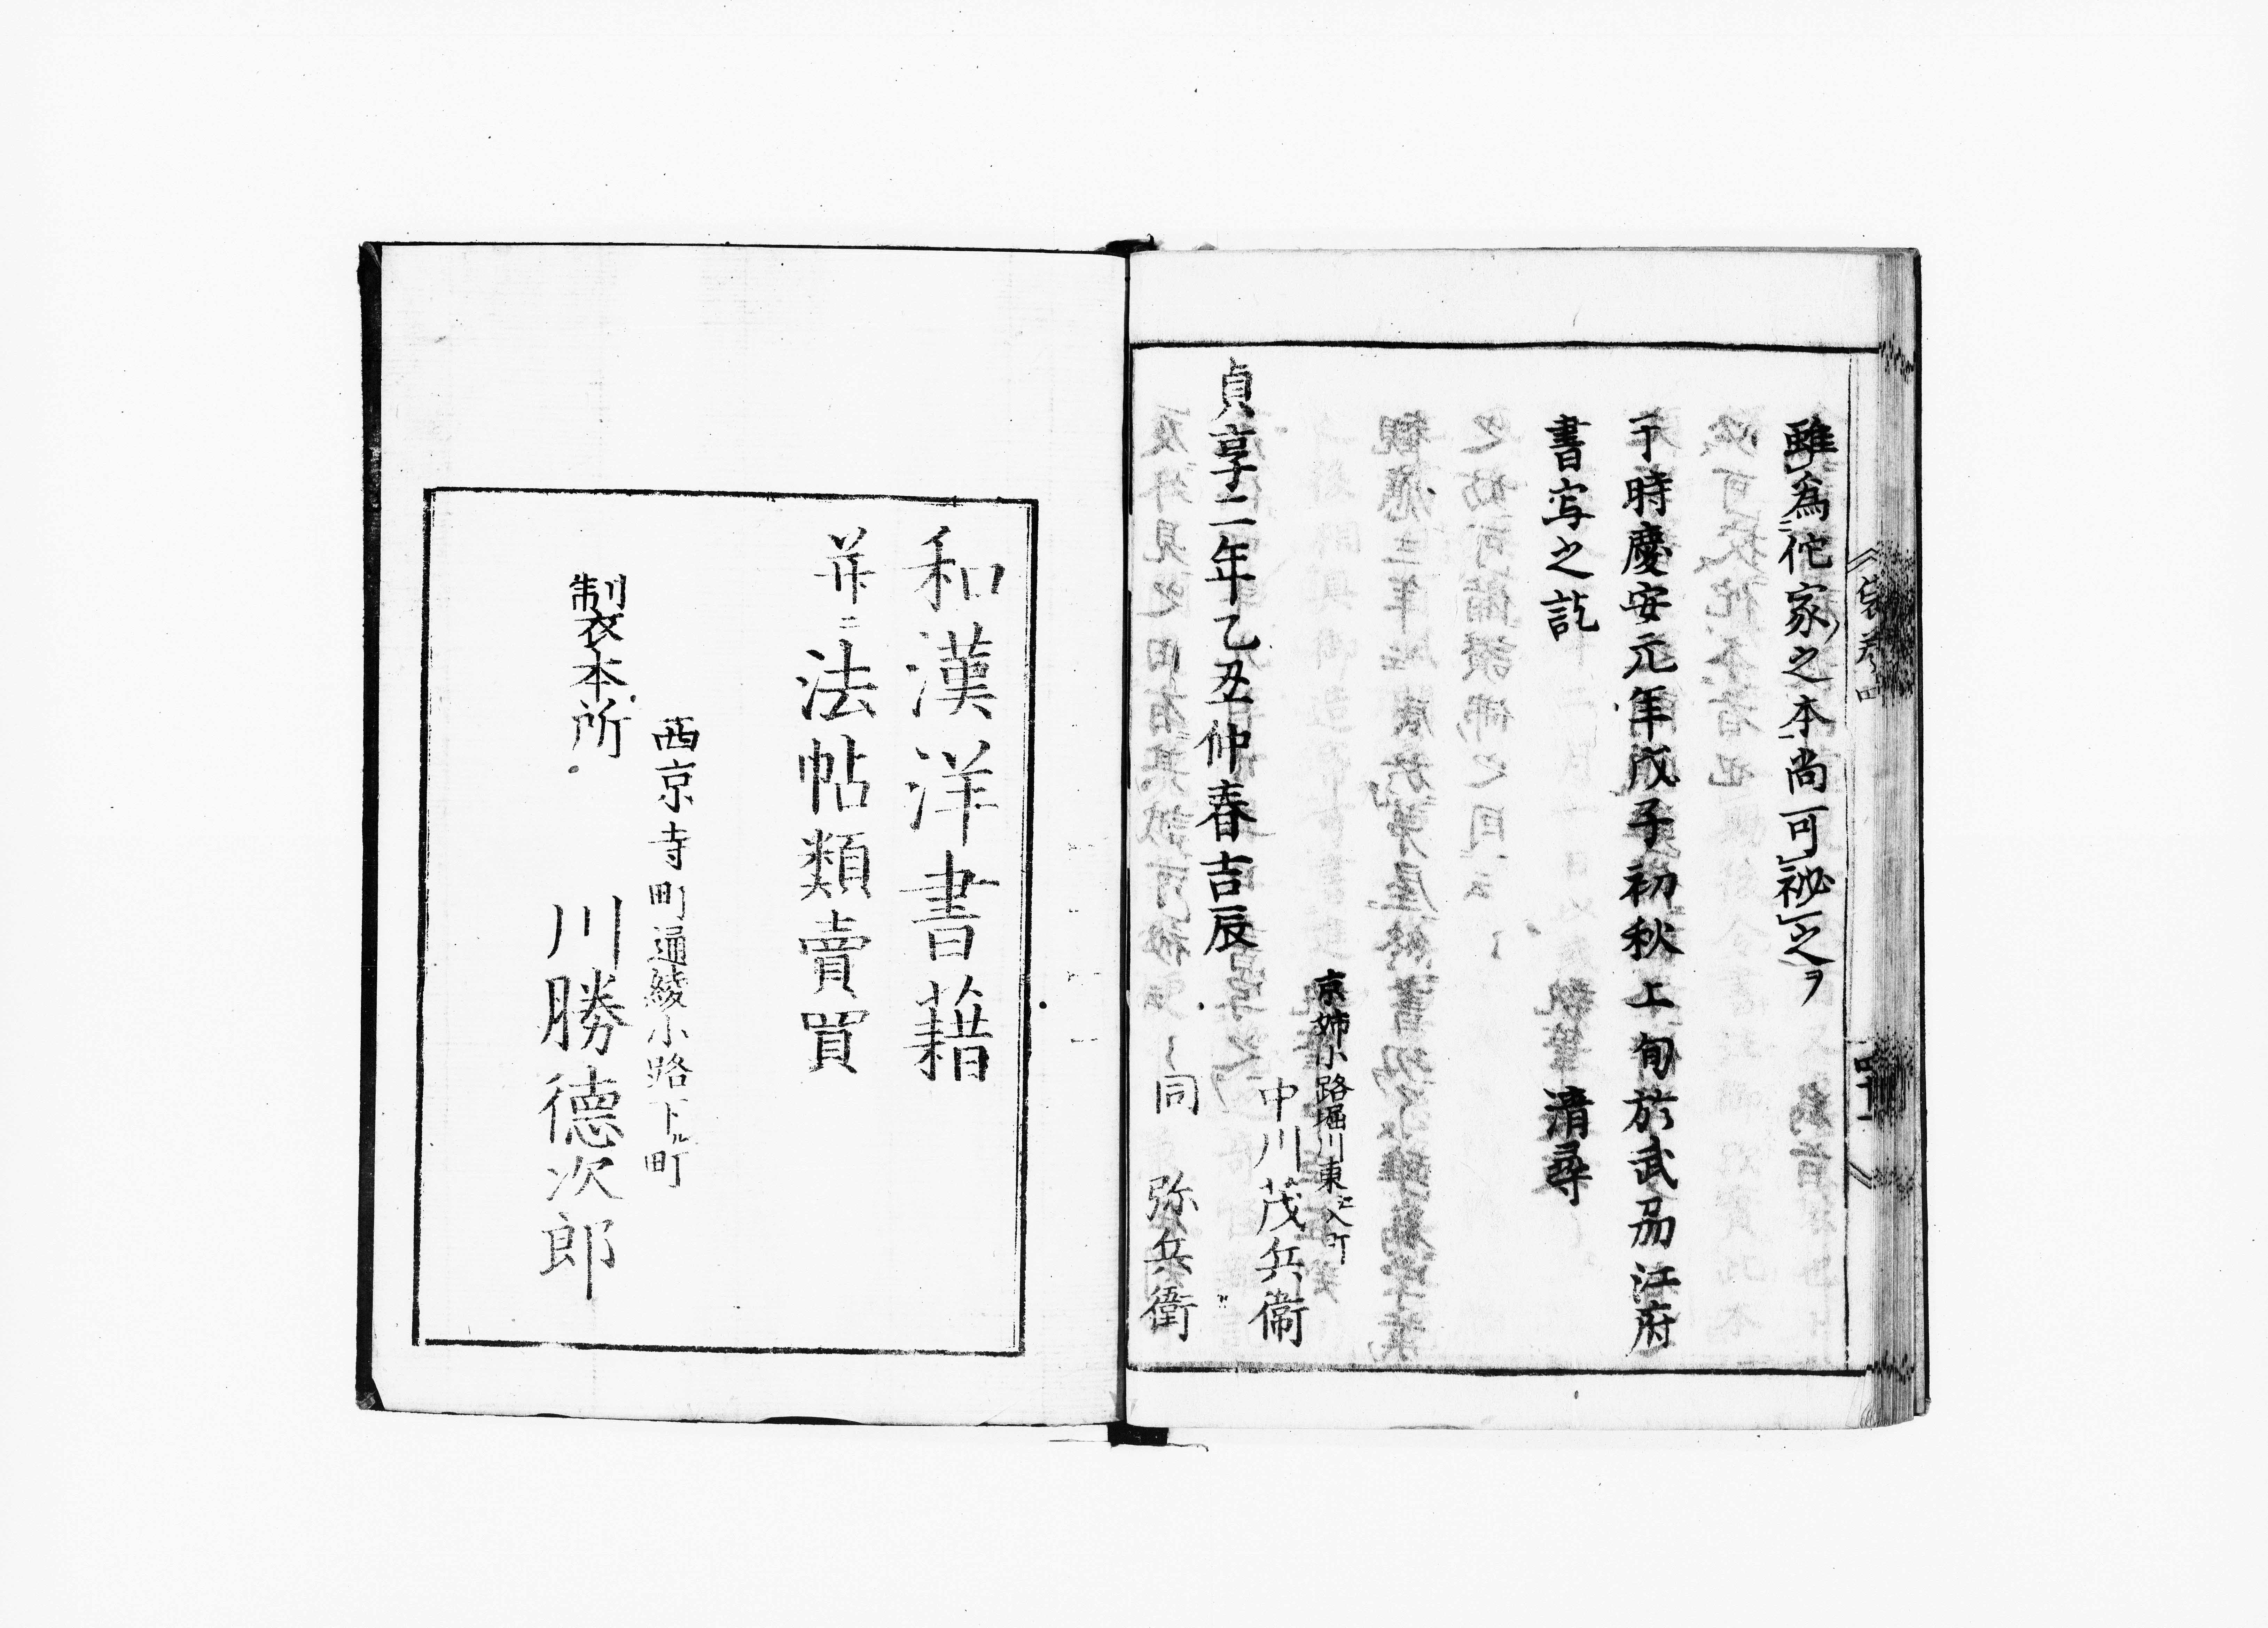 雖為佗家之本尚可秘之ヲ
于時慶安元年戊子初秋上旬於武刕江府
書写之訖　清尋
京姉小路堀川東ヘ入町
中川茂兵衛
貞享二年乙丑仲春吉辰
同　弥兵衛
和漢洋書籍
并ニ法帖類賣買
西京寺町通綾小路下ル町
製本所　川勝德次郎